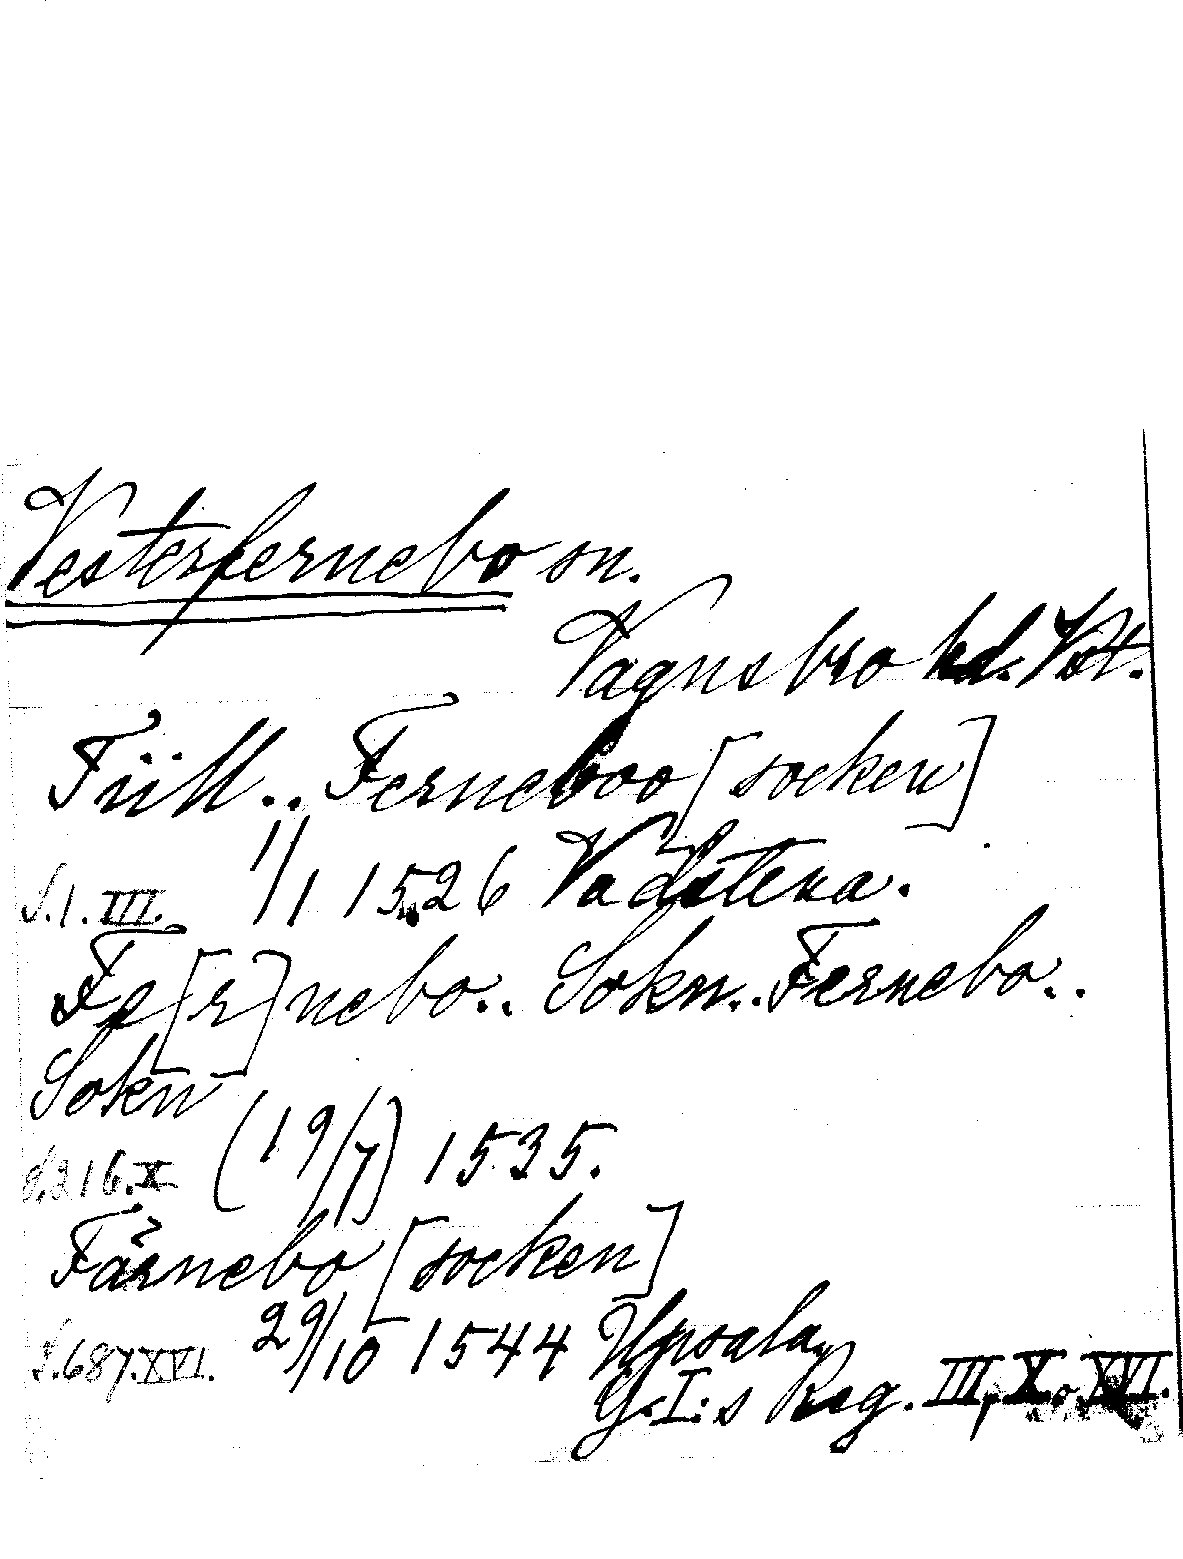 Vesterfernebo sn.
Vagnsbro hd. Vstt.
Tiill.. Ferneboo [socken]
S.1. III. 1/1 1526 Vadstena.
Fe[r]nebo.. Sokn.. Fernebo..
Sokn
S.316.X (19/7) 1535.
Färnebo [socken]
S.687.XVI. 29/10 1544 Upsala,
G.I:s Reg. III, X o XVI.